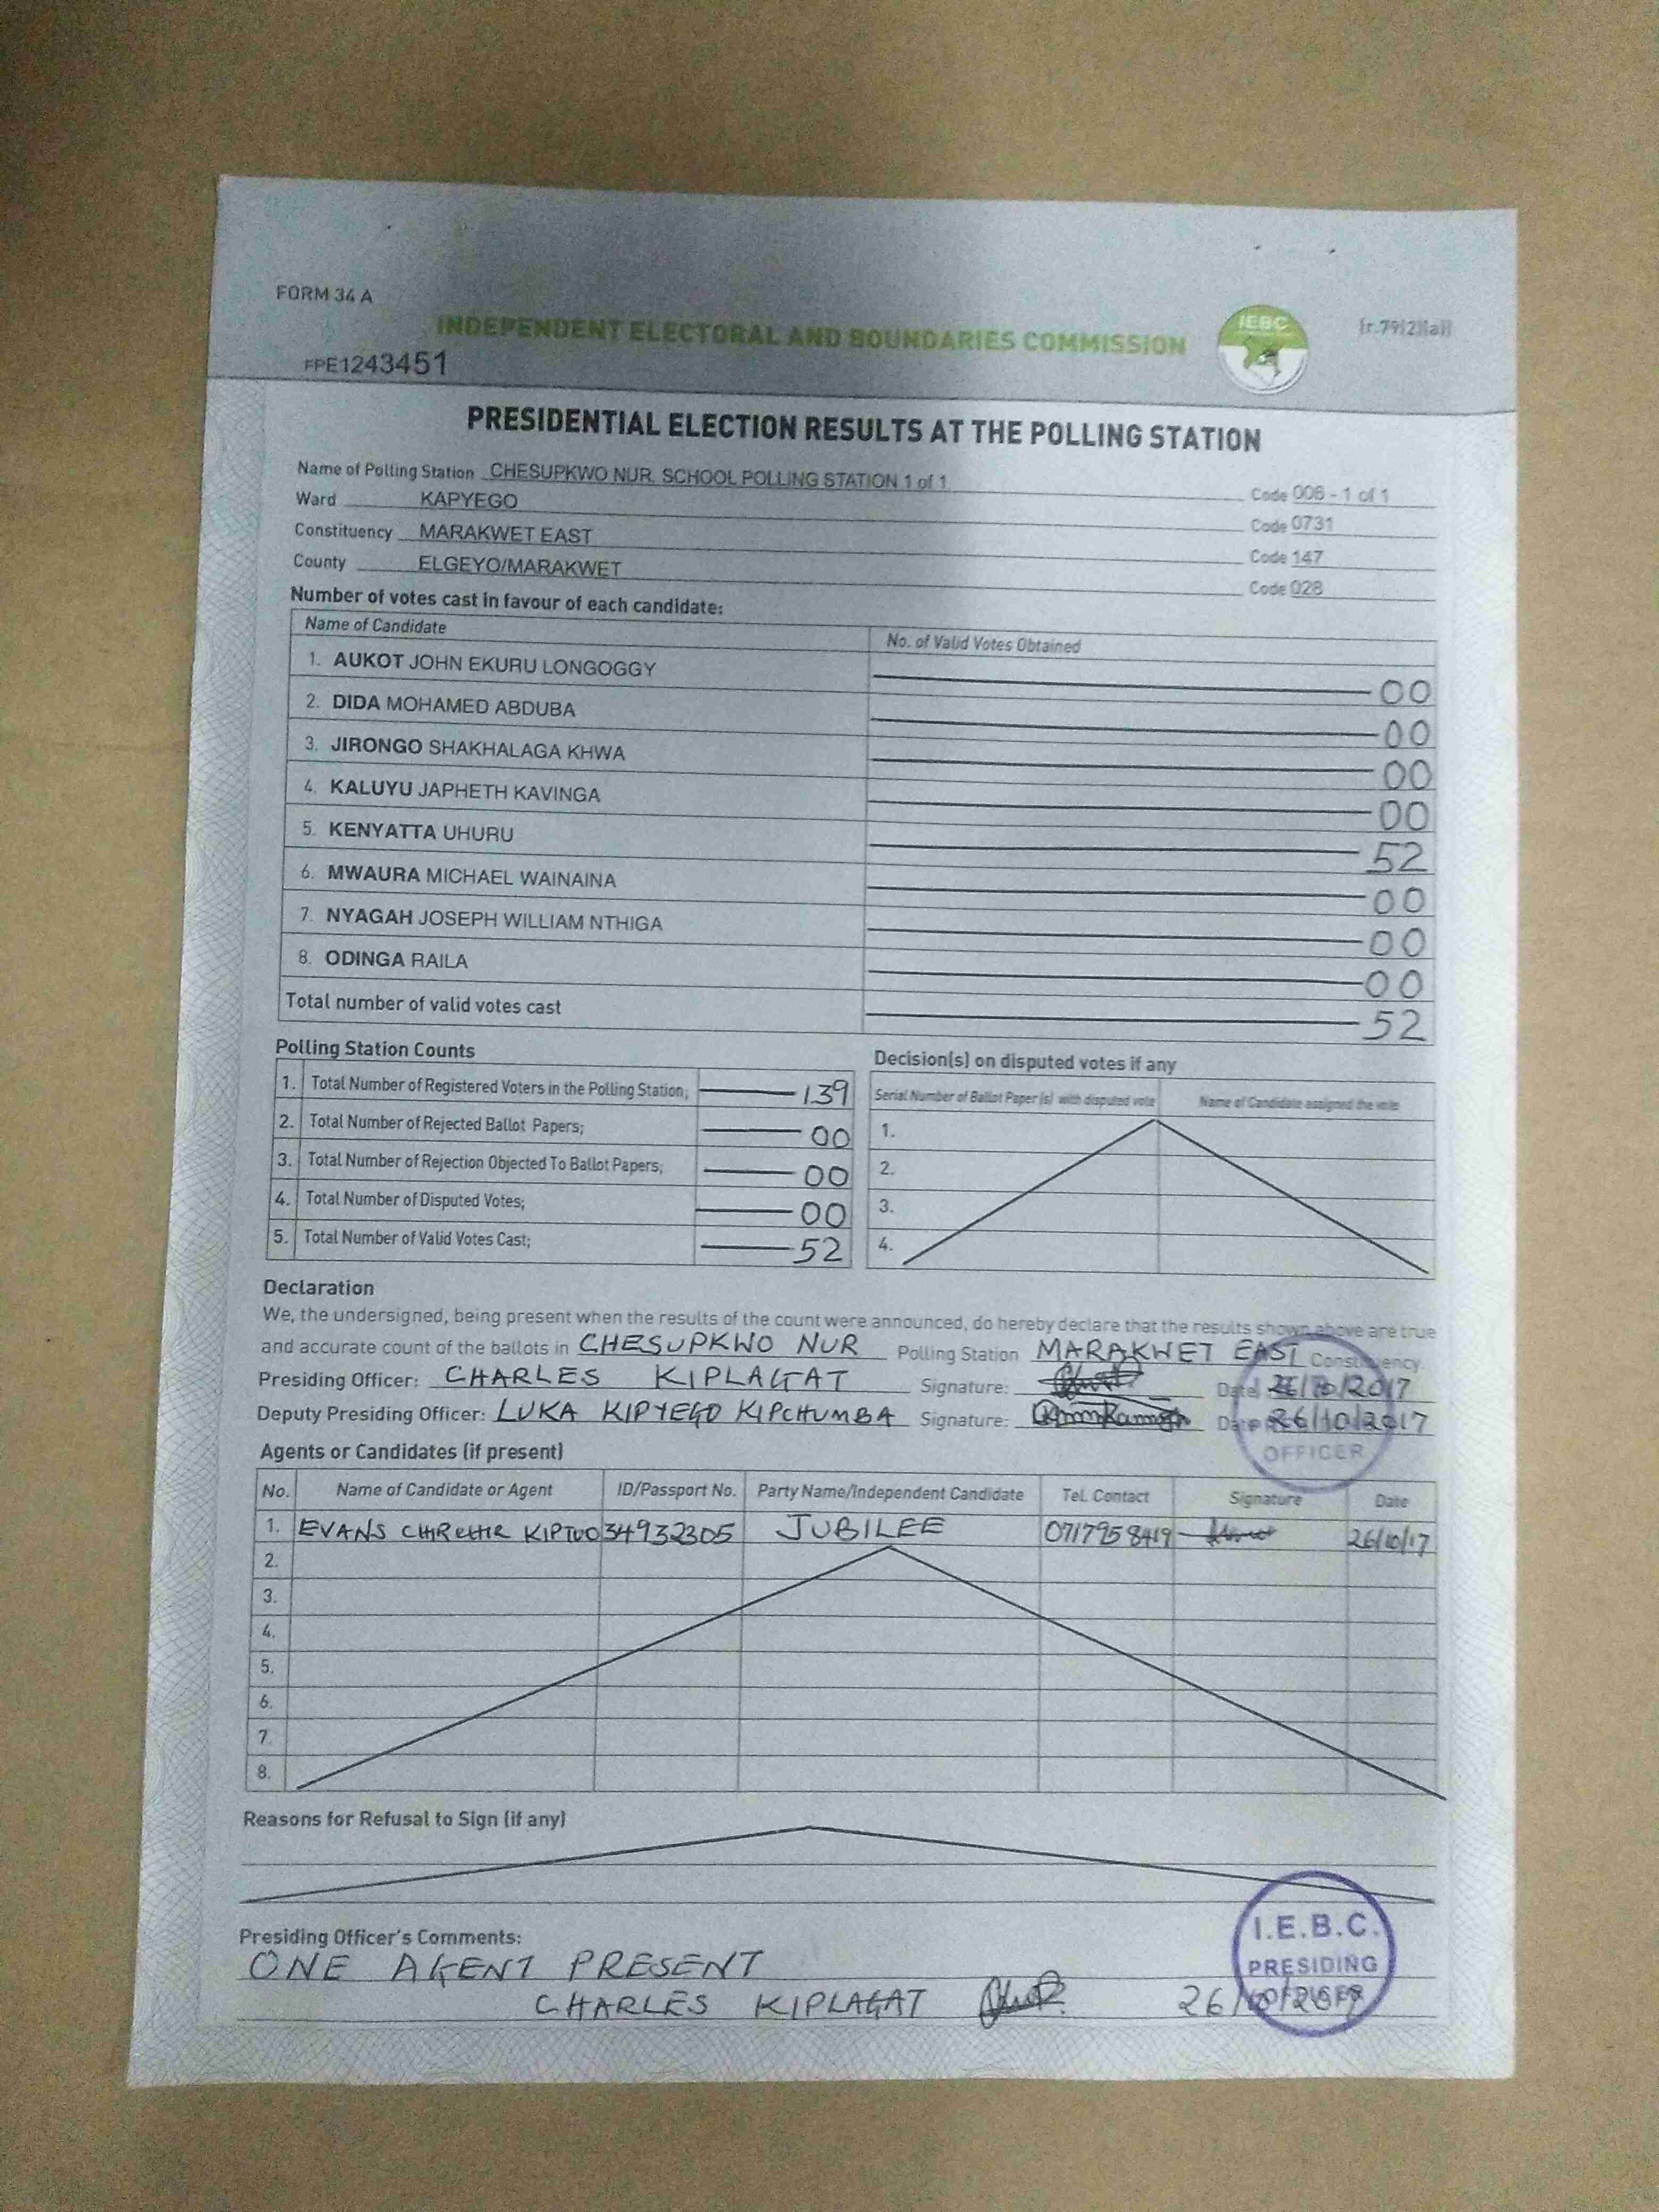 FORM 34 A
INDEPENDENT ELECTORAL AND BOUNDARIES COMMISSION
IEBC
(r.79(2)(a))
FPE1243451
PRESIDENTIAL ELECTION RESULTS AT THE POLLING STATION
Name of Polling Station CHESUPKWO NUR. SCHOOL POLLING STATION 1 of 1 Code 006 - 1 of 1
Ward KAPYEGO Code 0731
Constituency MARAKWET EAST Code 147
County ELGEYO/MARAKWET Code 028
Number of votes cast in favour of each candidate:
Name of Candidate No. of Valid Votes Obtained
1. AUKOT JOHN EKURU LONGOGGY 00
2. DIDA MOHAMED ABDUBA 00
3. JIRONGO SHAKHALAGA KHWA 00
4. KALUYU JAPHETH KAVINGA 00
5. KENYATTA UHURU 52
6. MWAURA MICHAEL WAINAINA 00
7. NYAGAH JOSEPH WILLIAM NTHIGA 00
8. ODINGA RAILA 00
Total number of valid votes cast 52
Polling Station Counts
1. Total Number of Registered Voters in the Polling Station; 139
2. Total Number of Rejected Ballot Papers; 00
3. Total Number of Rejection Objected To Ballot Papers; 00
4. Total Number of Disputed Votes; 00
5. Total Number of Valid Votes Cast; 52
Decision(s) on disputed votes if any
Serial Number of Ballot Paper (s) with disputed vote Name of Candidate assigned the vote
1.
2.
3.
4.
Declaration
We, the undersigned, being present when the results of the count were announced, do hereby declare that the results shown above are true
and accurate count of the ballots in CHESUPKWO NUR Polling Station MARAKWET EAST Constituency.
Presiding Officer: CHARLES KIPLAGAT Signature: Date 26/10/2017
Deputy Presiding Officer: LUKA KIPYEGO KIPCHUMBA Signature: Date 26/10/2017
OFFICER
Agents or Candidates (if present)
No. Name of Candidate or Agent ID/Passport No. Party Name/Independent Candidate Tel. Contact Signature Date
1. EVANS 34932305 JUBILEE 0717958419 26/10/17
2.
3.
4.
5.
6.
7.
8.
Reasons for Refusal to Sign (if any)
Presiding Officer's Comments:
ONE AGENT PRESENT
CHARLES KIPLAGAT 26/10/2017
I.E.B.C.
PRESIDING
OFFICER